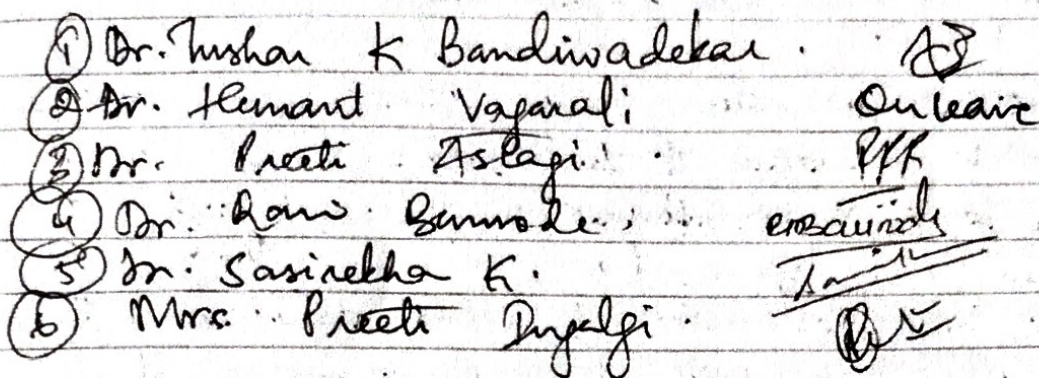 ① Dr. Tushar K Bandiwadekar.
② Dr. Hemant Vagarali On leave
③ Dr. Preeti Astagi.
④ Dr. Rani
⑤ Dr. Sasirekha K.
⑥ Mrs. Preeti Ingalgi